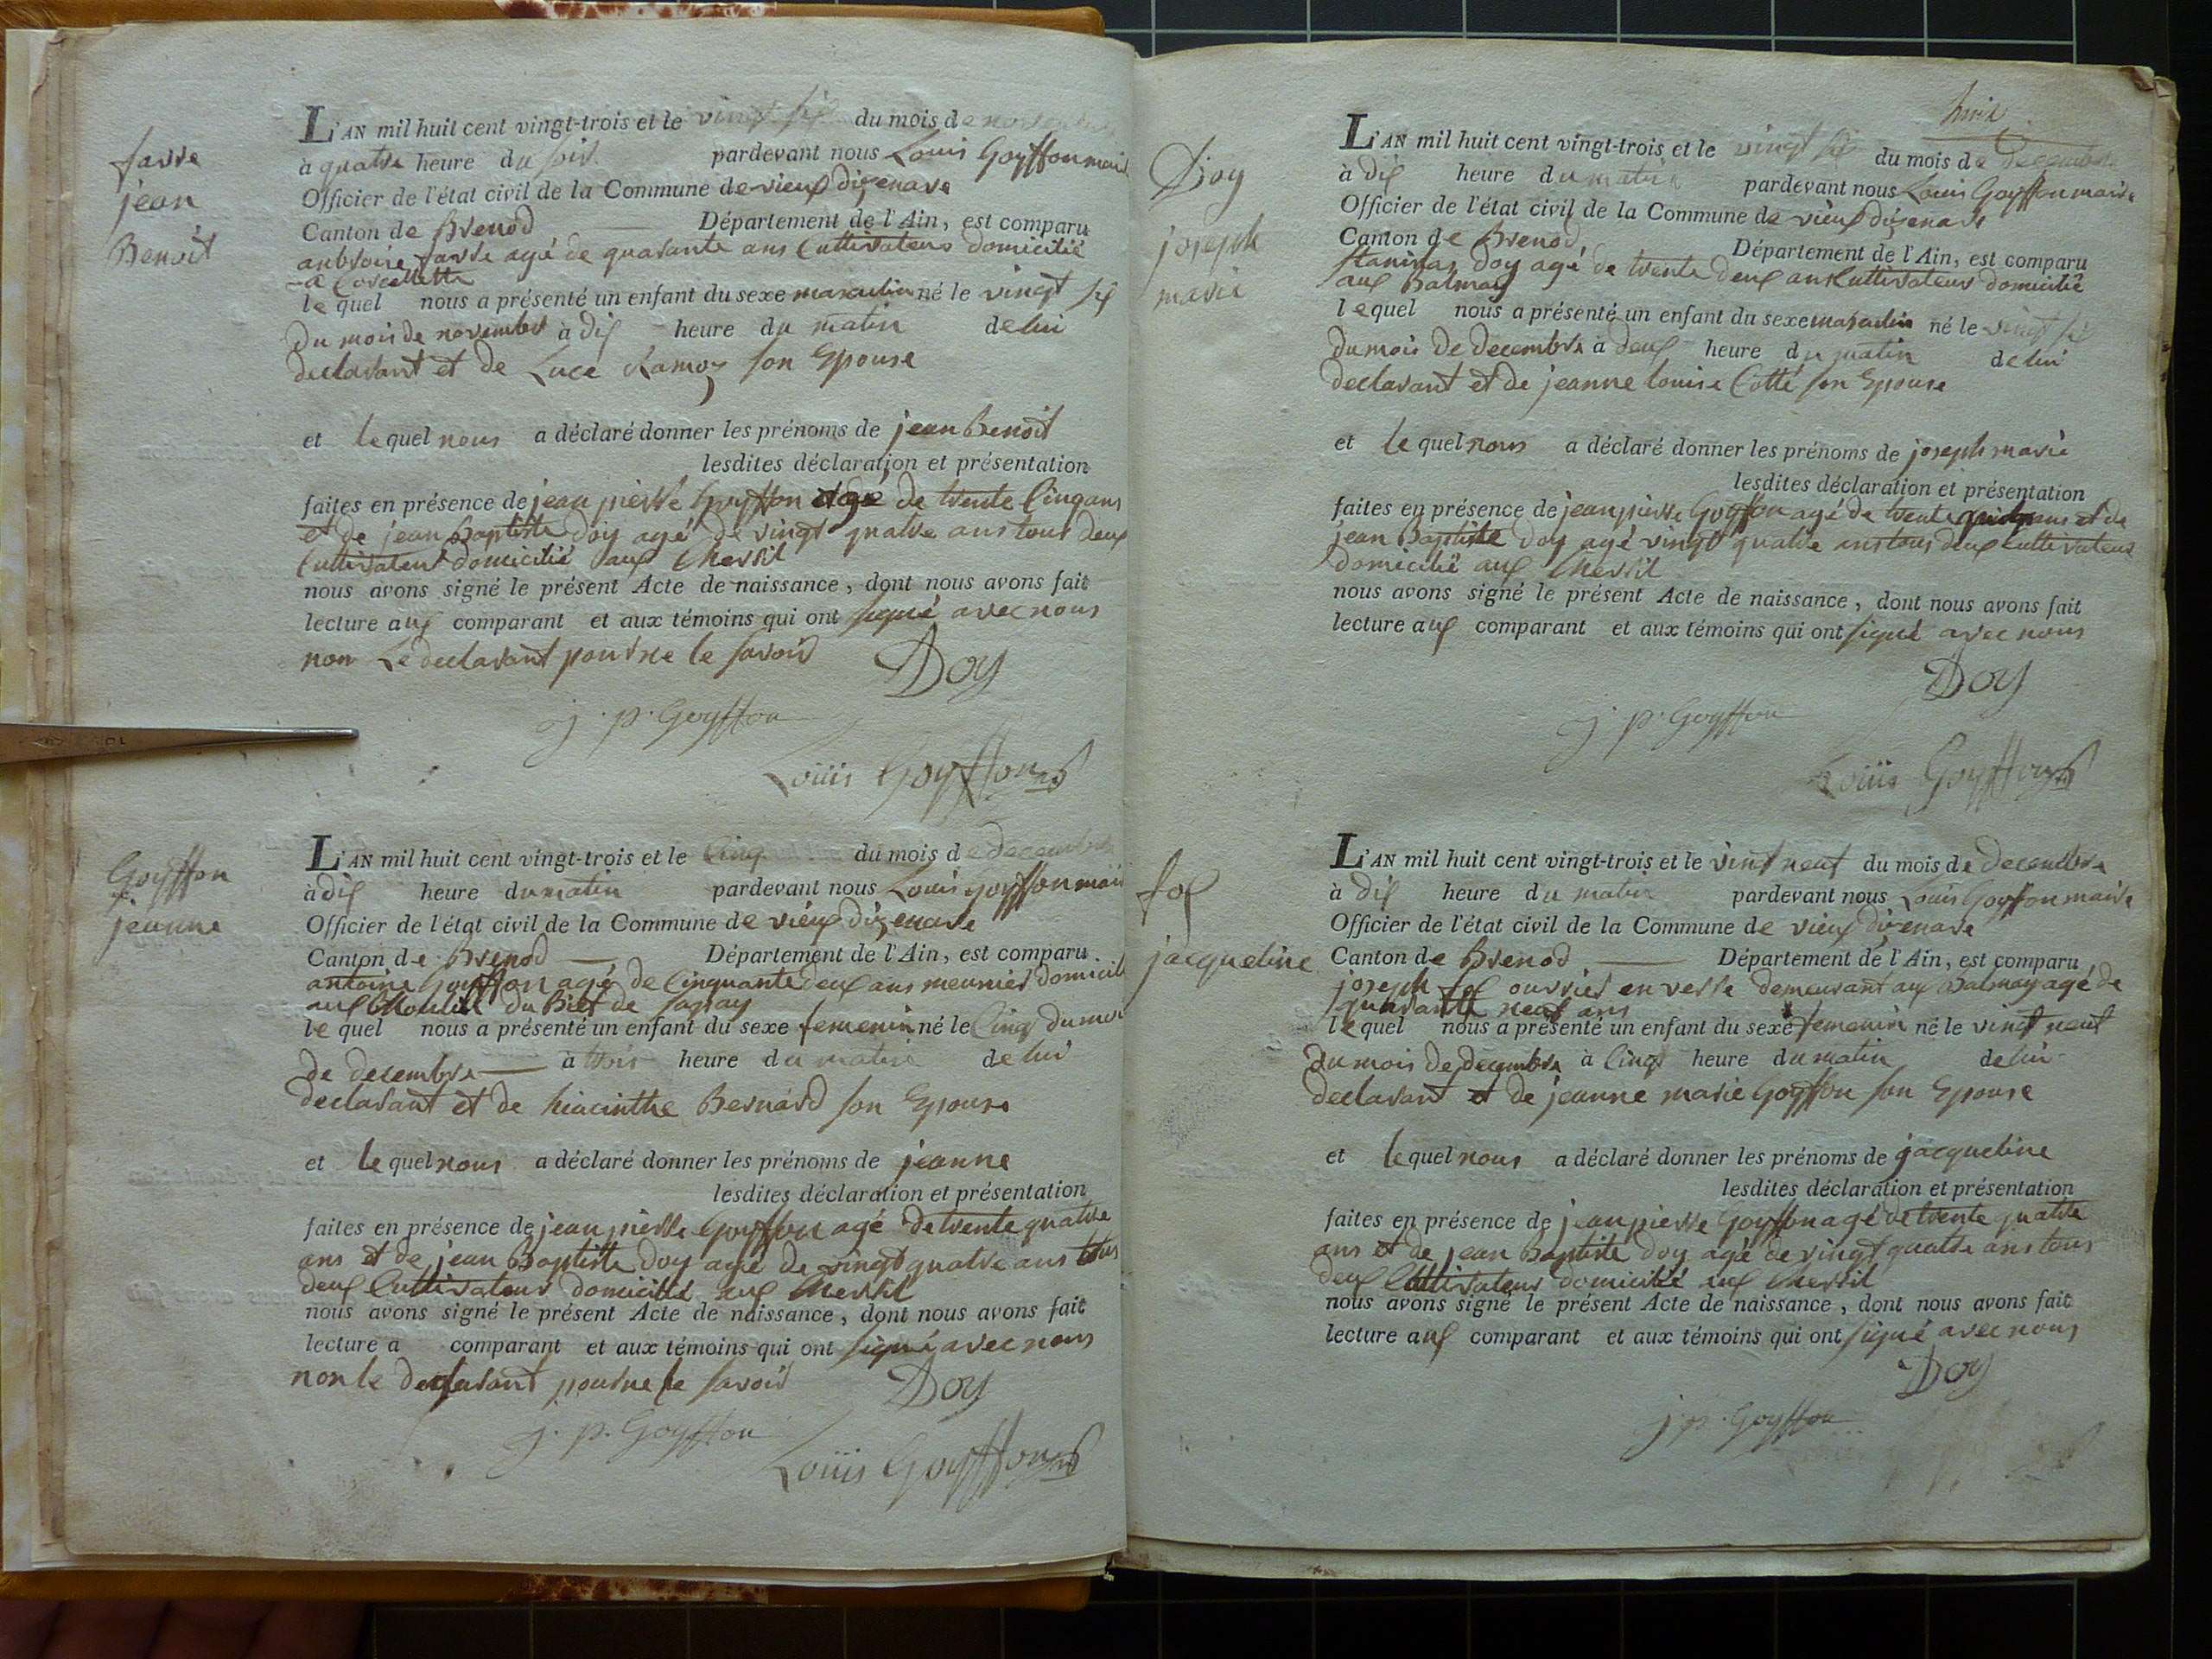 favre
jean
Benoit
L'AN mil huit cent vingt-trois et le vingt six du mois de novembre
à quatre heure du soir pardevant nous Louis Goyffon maire
Officier de l'état civil de la Commune de vieux dizenave
Canton de Brenod Département de l'Ain, est comparu
anbroise favre agé de quarante ans Cultivateur domicilié
a Corcelletta
le quel nous a présenté un enfant du sexe masculin né le vingt six
du mois de novembre à dix heure du matin de lui
declarant et de Luce Ramoz son Epouse
et lequel nous a déclaré donner les prénoms de jean Benoit
lesdites déclaration et présentation
faites en présence de jean pierre Goyffon agé de trente Cinq ans
et de jean Baptiste Doy agé de vingt quatre ans tous deux
Cultivateur domicilié aux Merlil
nous avons signé le présent Acte de naissance, dont nous avons fait
lecture aux comparant et aux témoins qui ont signé avec nous
non Le declarant pour ne le savoir Doy
j. p. Goyffon
Louis Goyffon
Goyffon
jeanne
L'AN mil huit cent vingt-trois et le Cinq du mois de decembre
à dix heure du matin pardevant nous Louis Goyffon maire
Officier de l'état civil de la Commune de vieux dizenave
Canton de Brenod Département de l'Ain, est comparu
antoine Goyffon agé de Cinquante deux ans meunier domicilié
aux Moulin du Biez de
le quel nous a présenté un enfant du sexe femenin né le Cinq du mois
de decembre à trois heure du matin de lui
declarant et de hiacinthe Bernard son Epouse
et lequel nous a déclaré donner les prénoms de jeanne
lesdites déclaration et présentation
faites en présence de jean pierre Goyffon agé de trente quatre
ans et de jean Baptiste Doy agé de vingt quatre ans tous
deux Cultivateur domicilié aux Merlil
nous avons signé le présent Acte de naissance, dont nous avons fait
lecture a comparant et aux témoins qui ont signé avec nous
non le declarant pour ne le savoir Doy
j. p. Goyffon
Louis Goyffon
huit
Doy
joseph
marie
L'AN mil huit cent vingt-trois et le vingt six du mois de decembre
à dix heure du matin pardevant nous Louis Goyffon maire
Officier de l'état civil de la Commune de vieux dizenave
Canton de Brenod Département de l'Ain, est comparu
stanislas Doy agé de trente deux ans Cultivateur domicilié
aux Balmay
lequel nous a présenté un enfant du sexe masculin né le vingt six
du mois de decembre à deux heure du matin de lui
declarant et de jeanne louise Cotté son Epouse
et lequel nous a déclaré donner les prénoms de joseph marie
lesdites déclaration et présentation
faites en présence de jean pierre Goyffon agé de trente ans et de
jean Baptiste Doy agé vingt quatre ans tous deux Cultivateur
domicilié aux Merlil
nous avons signé le présent Acte de naissance, dont nous avons fait
lecture aux comparant et aux témoins qui ont signé avec nous
Doy
j p. Goyffon
Louis Goyffon
fox
jacqueline
L'AN mil huit cent vingt-trois et le vint neuf du mois de decembre
à dix heure du matin pardevant nous Louis Goyffon maire
Officier de l'état civil de la Commune de vieux dizenave
Canton de Brenod Département de l'Ain, est comparu
joseph fox ouvrier en verre demeurant aux Balmay agé de
quarante neuf ans
lequel nous a présenté un enfant du sexe femenin né le vingt neuf
du mois de decembre à Cinq heure du matin de lui
declarant et de jeanne marie Goyffon son Epouse
et lequel nous a déclaré donner les prénoms de jacqueline
lesdites déclaration et présentation
faites en présence de jean pierre Goyffon agé de trente quatre
ans et de jean Baptiste Doy agé de vingt quatre ans tous
deux Cultivateur domicilié aux Merlil
nous avons signé le présent Acte de naissance, dont nous avons fait
lecture aux comparant et aux témoins qui ont signé avec nous
Doy
j. p. Goyffon